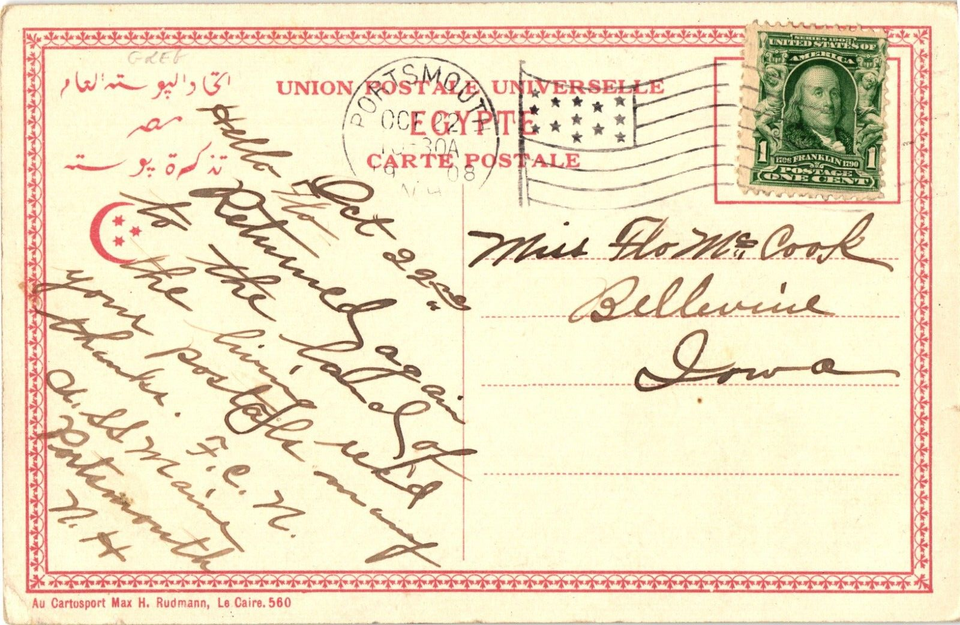 GREG
اتحاد البوسته العام
مصر
تذكرة بوسته
UNION POSTALE UNIVERSELLE
EGYPTE
CARTE POSTALE
PORTSMOUTH
OCT 22
30A
1908
N.H.
SERIES 1902
UNITED STATES OF
AMERICA
1706 FRANKLIN 1790
1 1
POSTAGE
ONE CENT
Oct 22nd
Hello Flo
Returned again
to the land of
the living
your postals rec'd
many
thanks.
F.C.N.
U.S.S. Maine
Portsmouth
N.H
Miss Flo McCook
Bellevine
Iowa
Au Cartosport Max H. Rudmann, Le Caire. 560